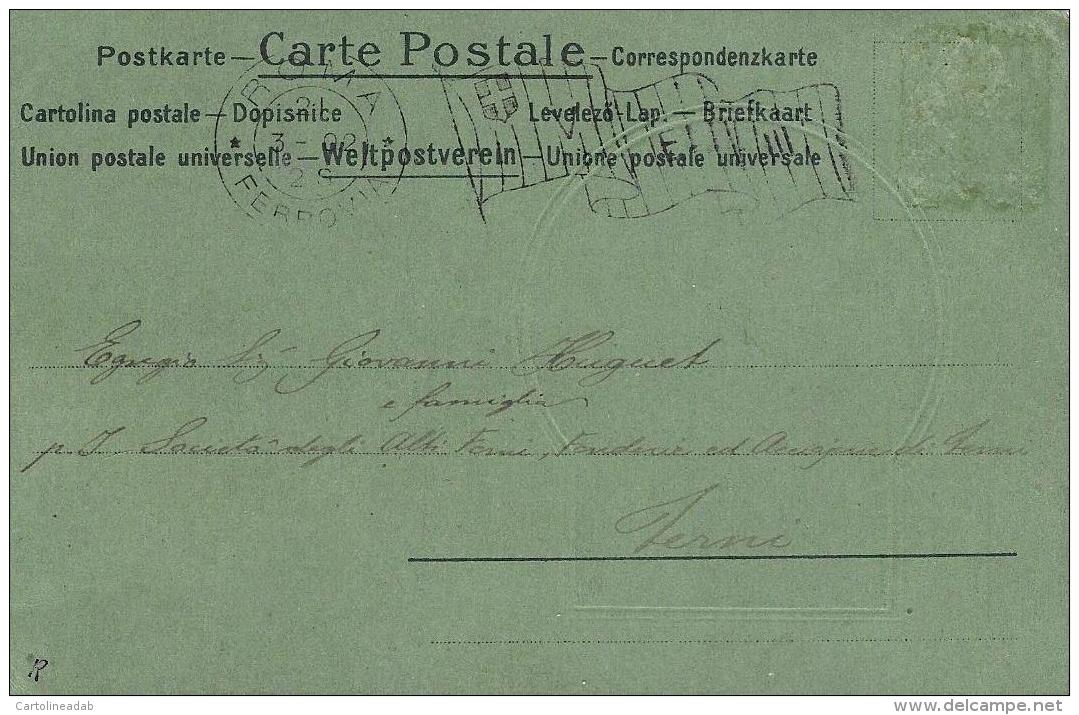 Postkarte — Carte Postale — Correspondenzkarte
Cartolina postale — Dopisnice Levelező-Lap. — Briefkaart
Union postale universelle — Weltpostverein — Unione postale universale
ROMA
21
3 - 02
2 S
FERROVIA
Egregio Sig. Giovanni Huguet
e famiglia
p. I. Società degli Alti Forni, Fonderie ed Acciajerie di Terni
Terni
R
© Cartolineadab
www.delcampe.net